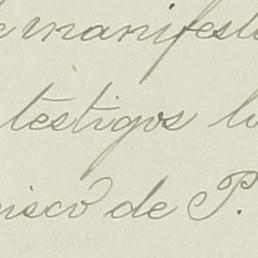 e manifesta
testigos lo
cisco de P.